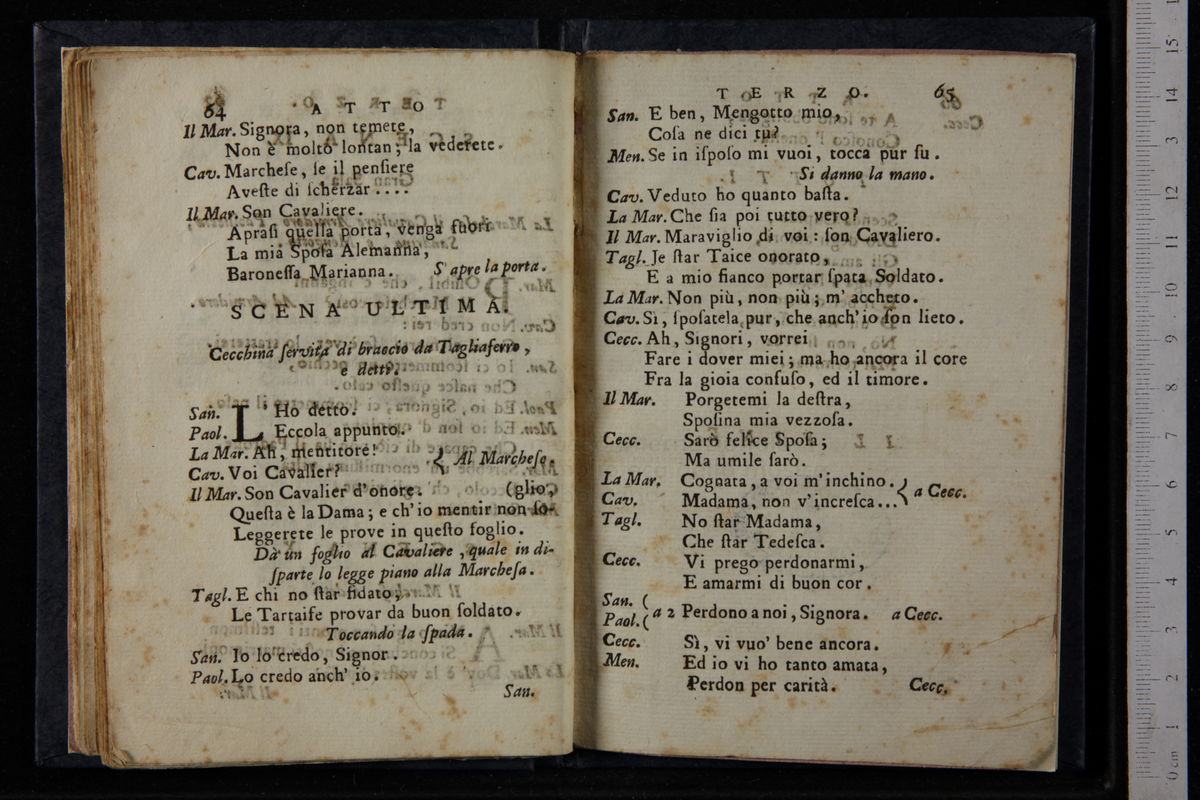 64 A T T O
Il Mar. Signora, non temete,
Non è molto lontan; la vederete.
Cav. Marcheſe, ſe il penſiere
Aveſte di ſcherzar....
Il Mar. Son Cavaliere.
Apraſi quella porta, venga fuori
La mia Spoſa Alemanna,
Baroneſſa Marianna. S'apre la porta.
SCENA ULTIMA.
Cecchina ſervita di braccio da Tagliaferro,
e detti.
San. L' Ho detto.
Paol. Eccola appunto.
La Mar. Ah, mentitore!
Cav. Voi Cavalier? } Al Marcheſe.
Il Mar. Son Cavalier d'onore. (glio,
Queſta è la Dama; e ch'io mentir non ſo-
Leggerete le prove in queſto foglio.
Dà un foglio al Cavaliere, quale in di-
ſparte lo legge piano alla Marcheſa.
Tagl. E chi no ſtar fidato,
Le Tartaife provar da buon ſoldato.
Toccando la ſpada.
San. Io lo credo, Signor.
Paol. Lo credo anch' io.
San.
T E R Z O. 65
San. E ben, Mengotto mio,
Coſa ne dici tu?
Men. Se in iſpoſo mi vuoi, tocca pur ſu.
Si danno la mano.
Cav. Veduto ho quanto baſta.
La Mar. Che ſia poi tutto vero?
Il Mar. Maraviglio di voi: ſon Cavaliero.
Tagl. Je ſtar Taice onorato,
E a mio fianco portar ſpata Soldato.
La Mar. Non più, non più; m' accheto.
Cav. Sì, ſpoſatela pur, che anch'io ſon lieto.
Cecc. Ah, Signori, vorrei
Fare i dover miei; ma ho ancora il core
Fra la gioia confuſo, ed il timore.
Il Mar. Porgetemi la deſtra,
Spoſina mia vezzoſa.
Cecc. Sarò felice Spoſa;
Ma umile ſarò.
La Mar. Cognata, a voi m'inchino.
Cav. Madama, non v'increſca... } a Cecc.
Tagl. No ſtar Madama,
Che ſtar Tedeſca.
Cecc. Vi prego perdonarmi,
E amarmi di buon cor.
San. (
Paol. ( a 2 Perdono a noi, Signora. a Cecc.
Cecc. Sì, vi vuo' bene ancora.
Men. Ed io vi ho tanto amata,
Perdon per carità. Cecc.
0 cm 1 2 3 4 5 6 7 8 9 10 11 12 13 14 15